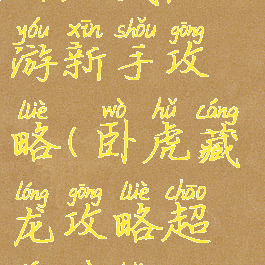 yóu xīn shǒu gōng
游新手攻
lüè wò hǔ cáng
略(卧虎藏
lóng gōng lüè chāo
龙攻略超